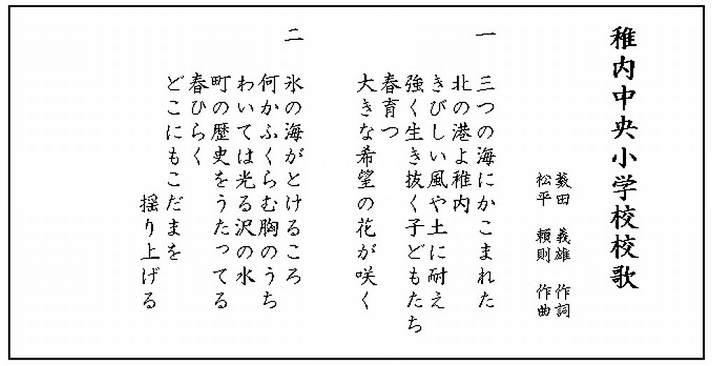 稚内中央小学校校歌
藪田 義雄 作詞
松平 頼則 作曲
一
三つの海にかこまれた
北の港よ稚内
きびしい風や土に耐え
強く生き抜く子どもたち
春育つ
大きな希望の花が咲く
二
氷の海がとけるころ
何かふくらむ胸のうち
わいては光る沢の水
町の歴史をうたってる
春ひらく
どこにもこだまを
揺り上げる